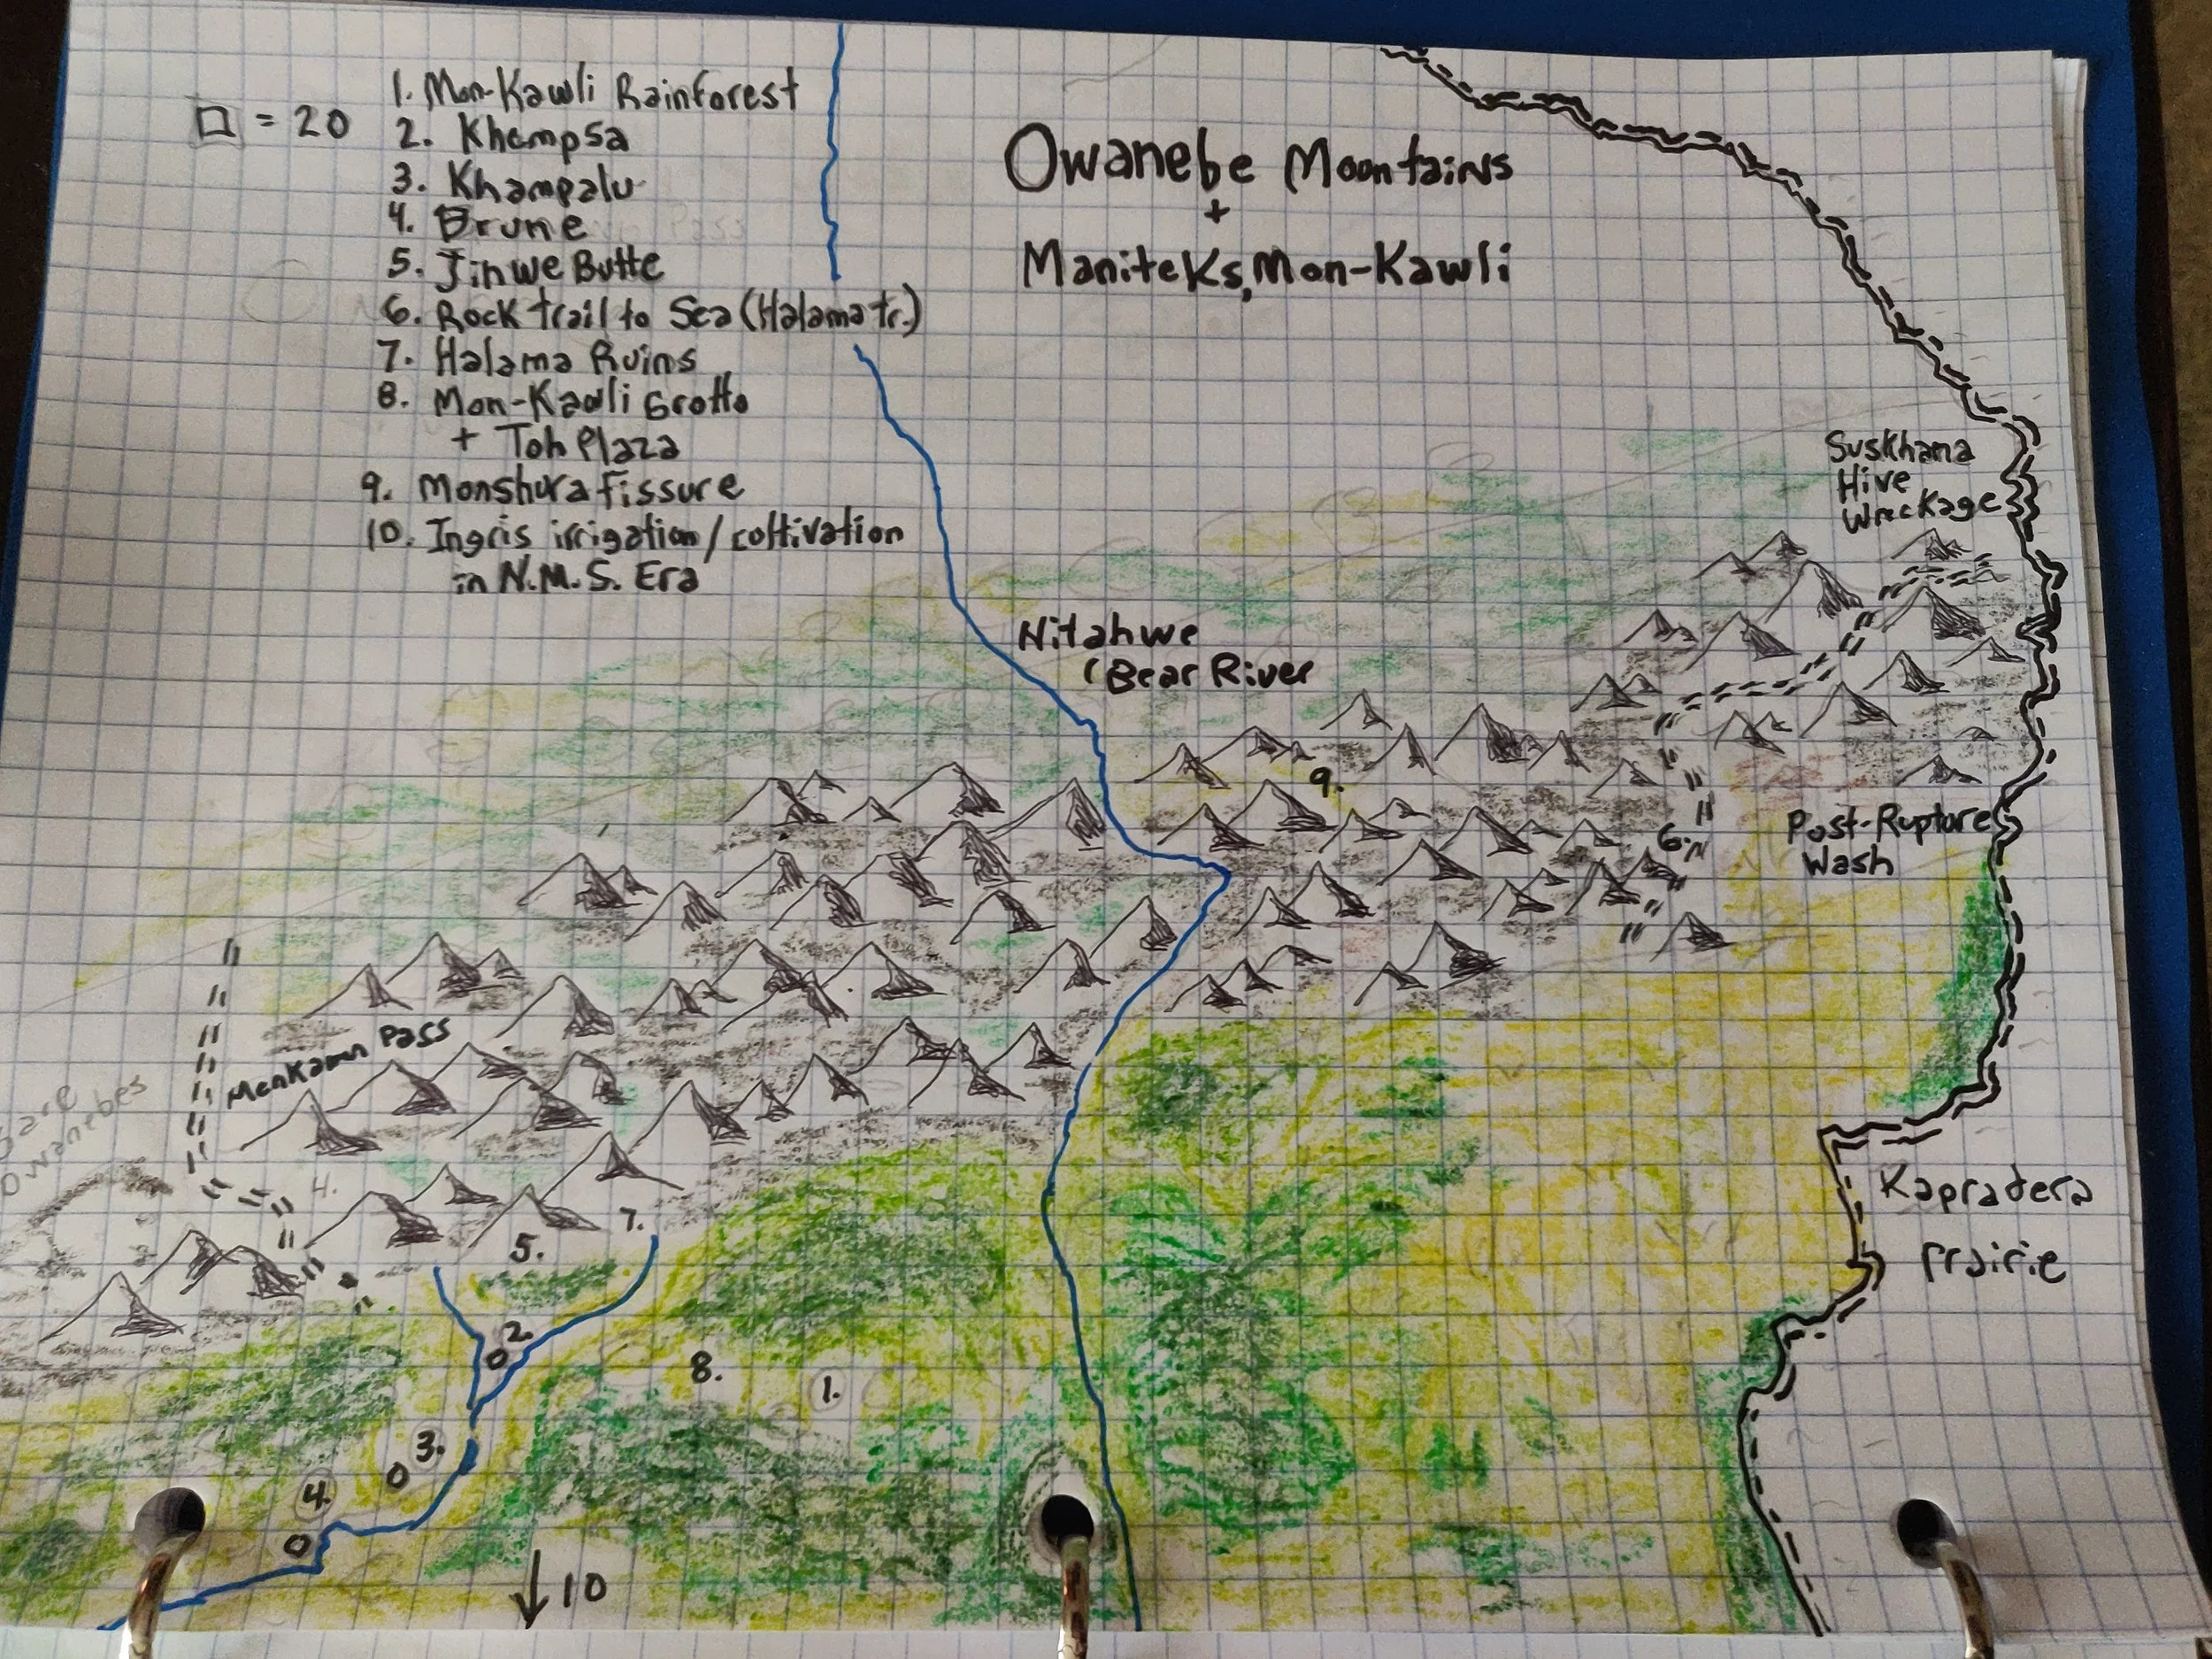 □ = 20
1. Mon-Kawli Rainforest
2. Khempsa
3. Khampalu
4. Brune
5. Jinwe Butte
6. Rock trail to Sea (Halama tr.)
7. Halama Ruins
8. Mon-Kawli Grotto
+ Toh Plaza
9. Monshura Fissure
10. Ingris irrigation/cultivation
in N.M.S. Era
Owanebe Mountains
+
Maniteks, Mon-Kawli
Suskhana
Hive
Wreckage
Nitahwe
(Bear River
9.
6.
Post-Rupture
Wash
Pass
Owanebes
4.
5.
7.
Kapradera
Prairie
2.
8.
1.
3.
4.
↓10